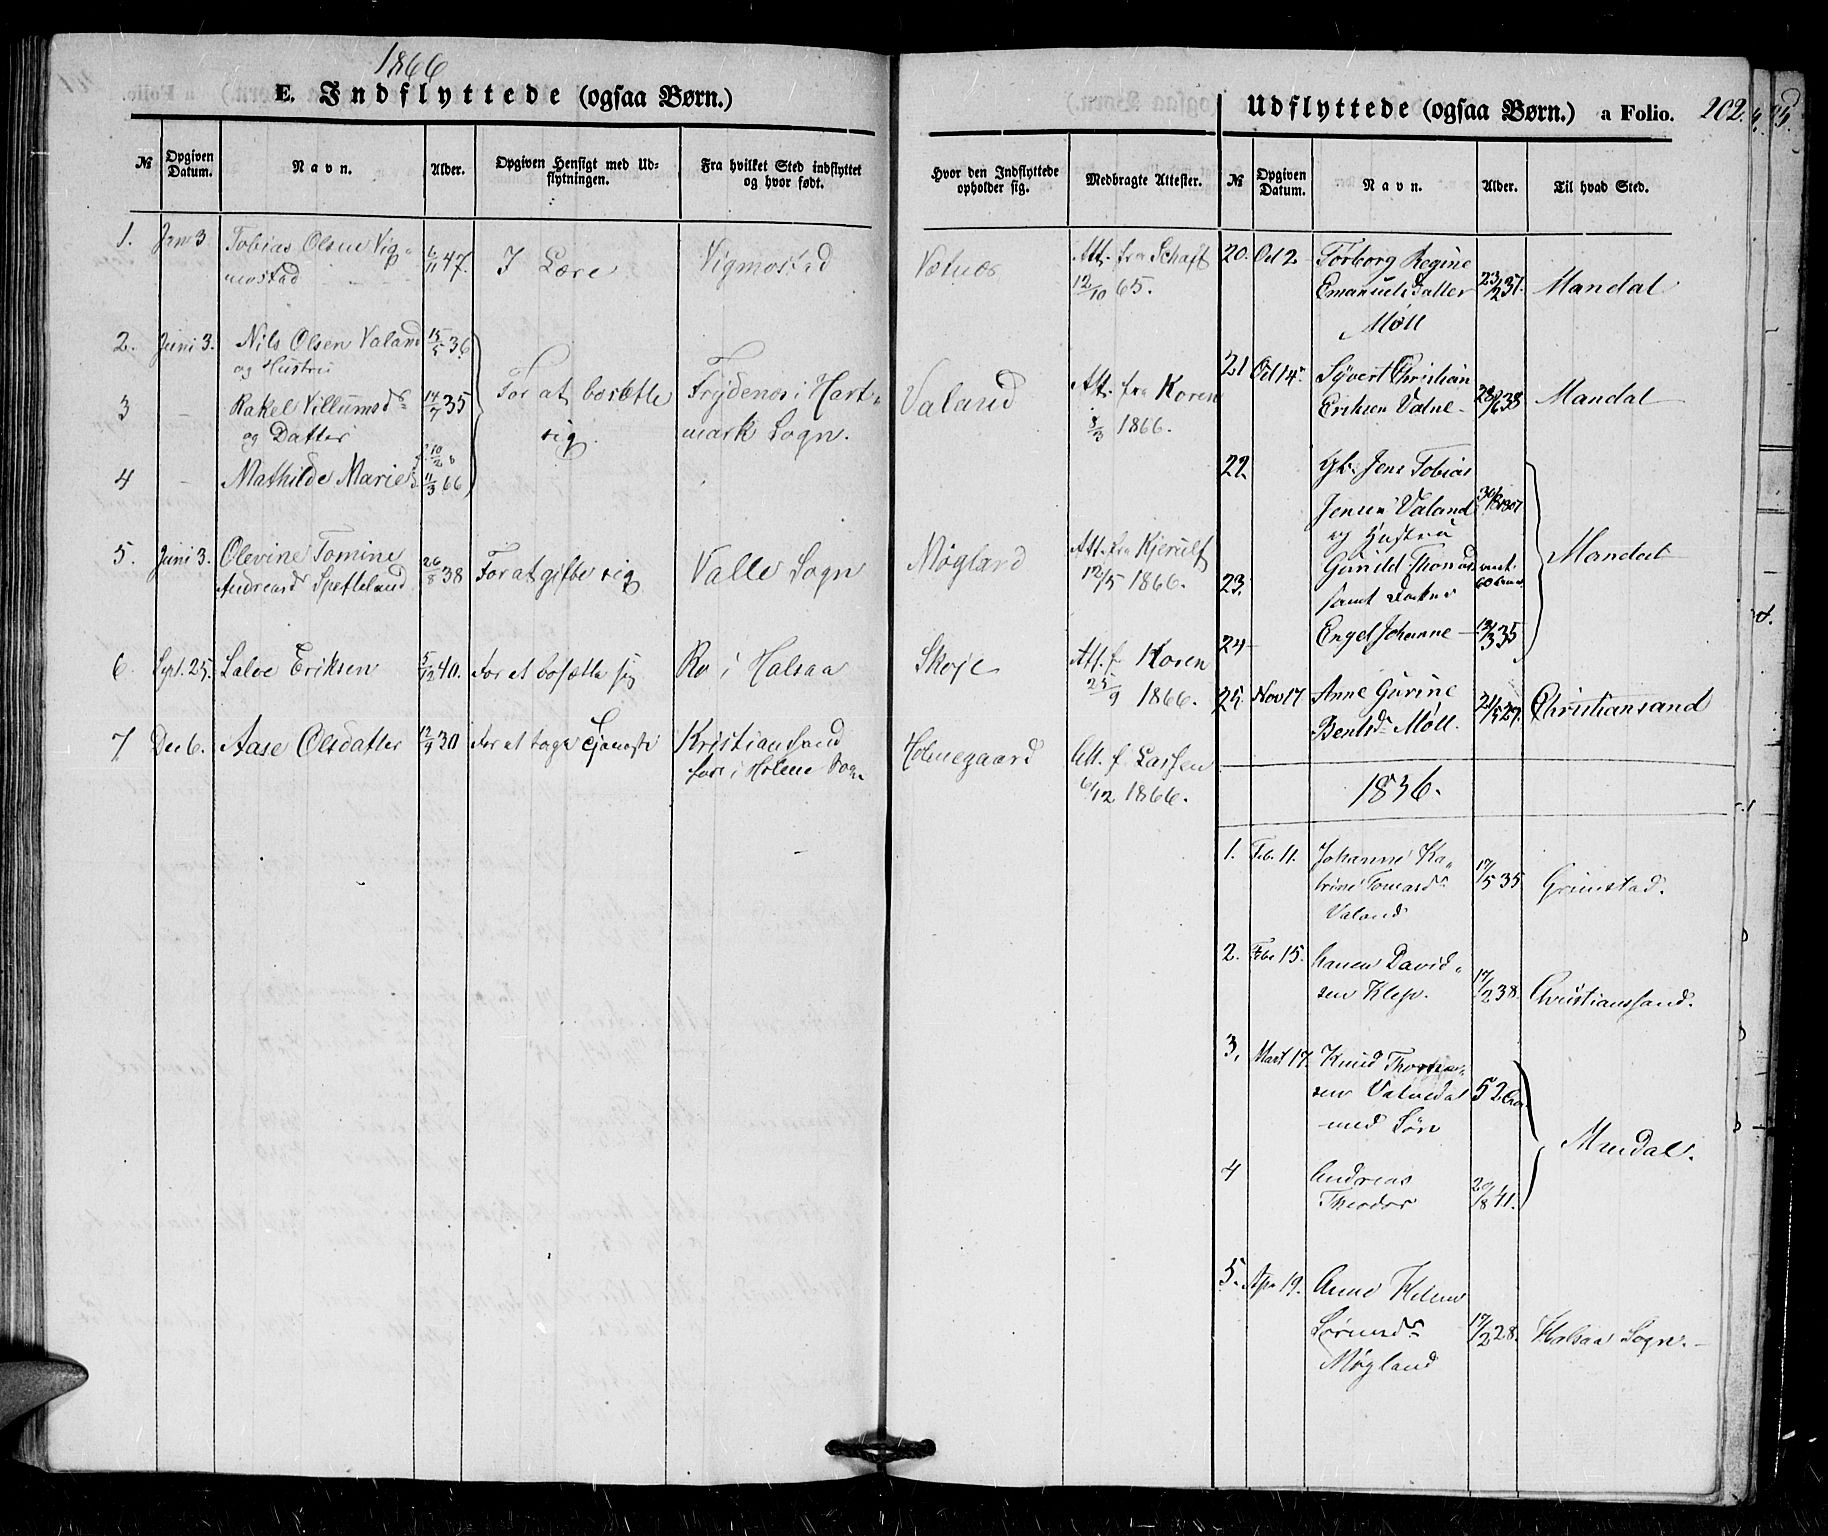 1866
E. Indflyttede (ogsaa Børn.)
№
Opgiven Datum.
Navn.
Alder.
Opgiven Hensigt med Udflytningen.
Fra hvilket Sted indflyttet og hvor født.
Hvor den Indflyttede opholder sig.
Medbragte Attester.
1. Jan 3 Tobias Olsen Vig- 6/11 47. I Lære Vigmostad Att. fra
mostad 12/10 65.
2. Juni 3. Nils Olsen Valand 15/5 36
og Hustru
3 – Rakel Villumsdr 14/7 35 For at bosætte Frydenes i Hart- Valand Att. fra Koren
og Datter sig. mark Sogn. 8/3 1866.
4 – Mathilde Marie 11/3 66
5. Juni 3. Olevine Tomine 26/8 38 For at gifte sig Valle Sogn Møgland Att. fra Kjerulf
Andreasd 12/5 1866.
6. Sept. 25. Salve Eriksen 5/12 40. For at bosætte sig Ro i Halsaa Skoje Att. f Koren
25/9 1866.
7 Dec 6. Aase Olsdatter 12/9 30 For at tage Tjeneste Kristiansand Holmegaard Att. f. Lassen
i Holme Sogn 6/12 1866.
Udflyttede (ogsaa Børn.) a Folio. 202.
№
Opgiven Datum.
Navn.
Alder.
Til hvad Sted.
20. Oct 2 Torborg Regine
Emanuelsdatter 23/2 37. Mandal
Møll
21 Oct 14. Syvert Christian
Eriksen Valne 28/6 38 Mandal
22. Jens Tobias
Jensen Valand 30/8 1807
og Hustru
23. Gunild Thomasd Mandal
samt Datter
24 Engel Johanne 13/3 35
25. Nov 17 Anne Gurine
Bentsdr Møll. 24/5 29. Christiansand
1836.
1. Feb. 11. Johanne Ka-
trine Tomasdr 17/5 35 Grimstad.
Valand
2. Febr 15. David-
sen Klep. 17/2 38. Christianssand.
3. Mart 17. Knud
sen 52
med Søn
Mandal.
4 Andreas
Theodor 20/8 41.
5. Apr 19. Anne Helene
17/2 28. Halsaa Sogn.
Møgland